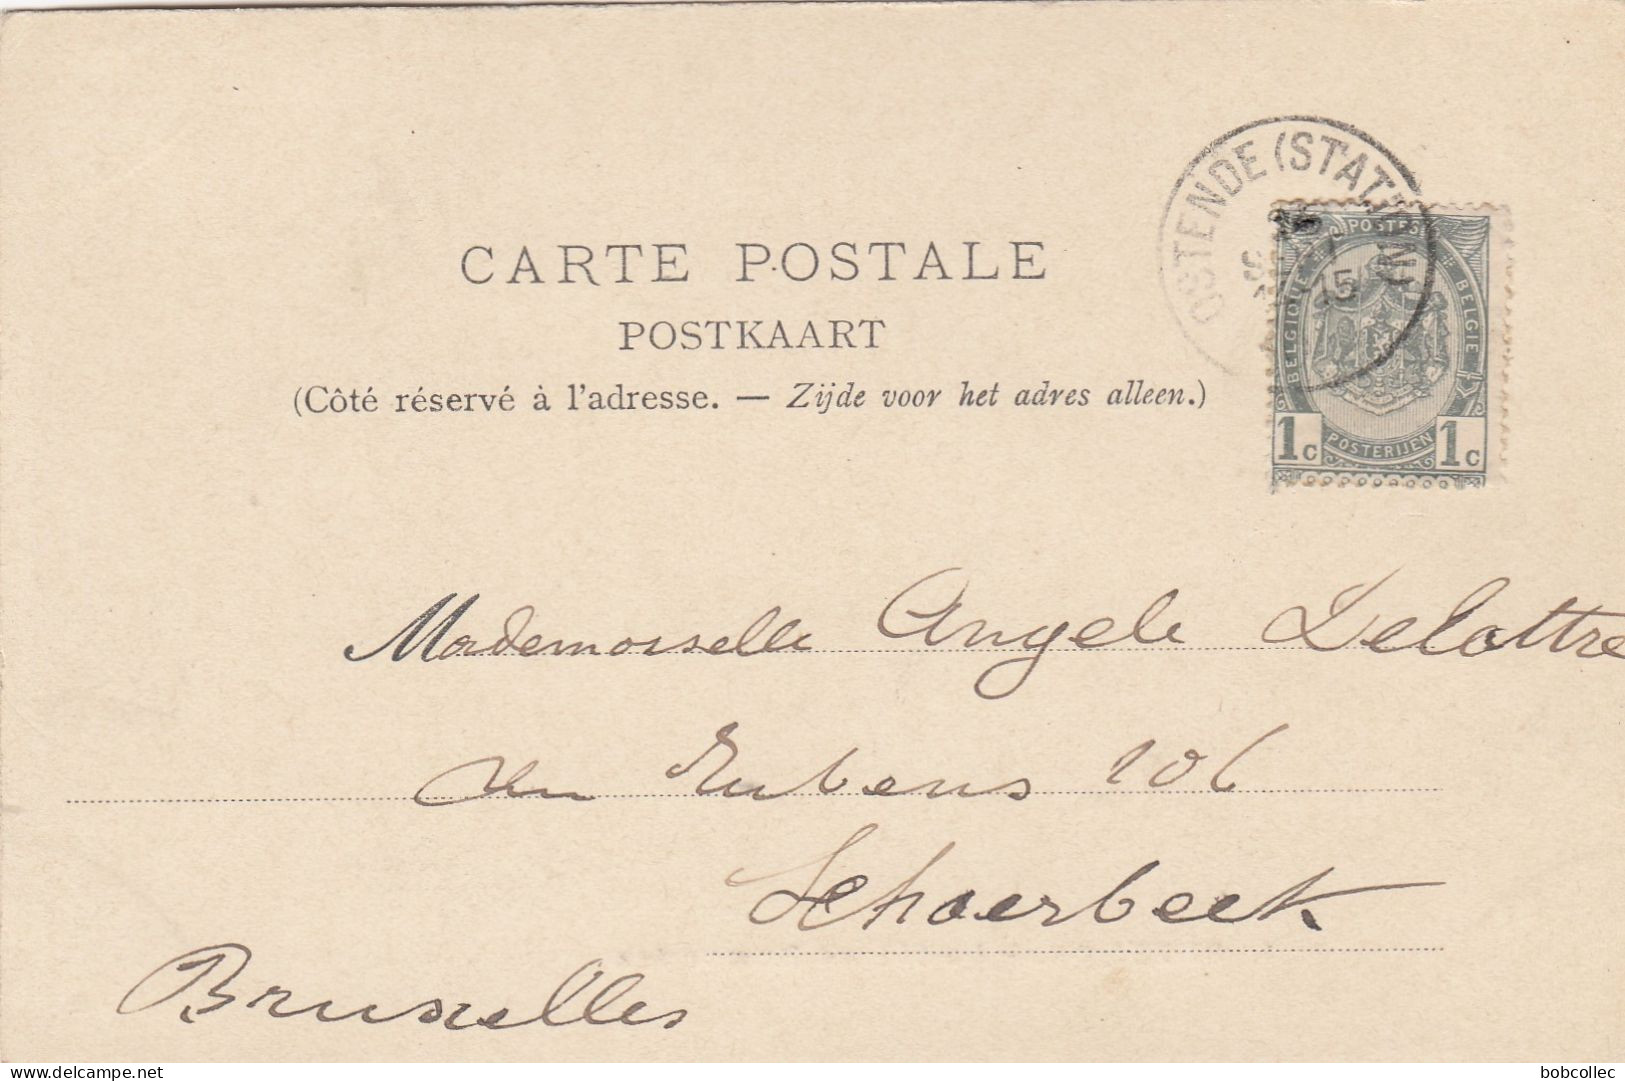 OSTENDE (STATION)
15
POSTES
BELGIQUE
BELGIË
CARTE POSTALE
POSTKAART
(Côté réservé à l'adresse. — Zijde voor het adres alleen.)
1c POSTERIJEN 1c
Mademoiselle Angele Delattre
Rubens 106
Schaerbeek
Bruxelles
delcampe.net
bobcollec